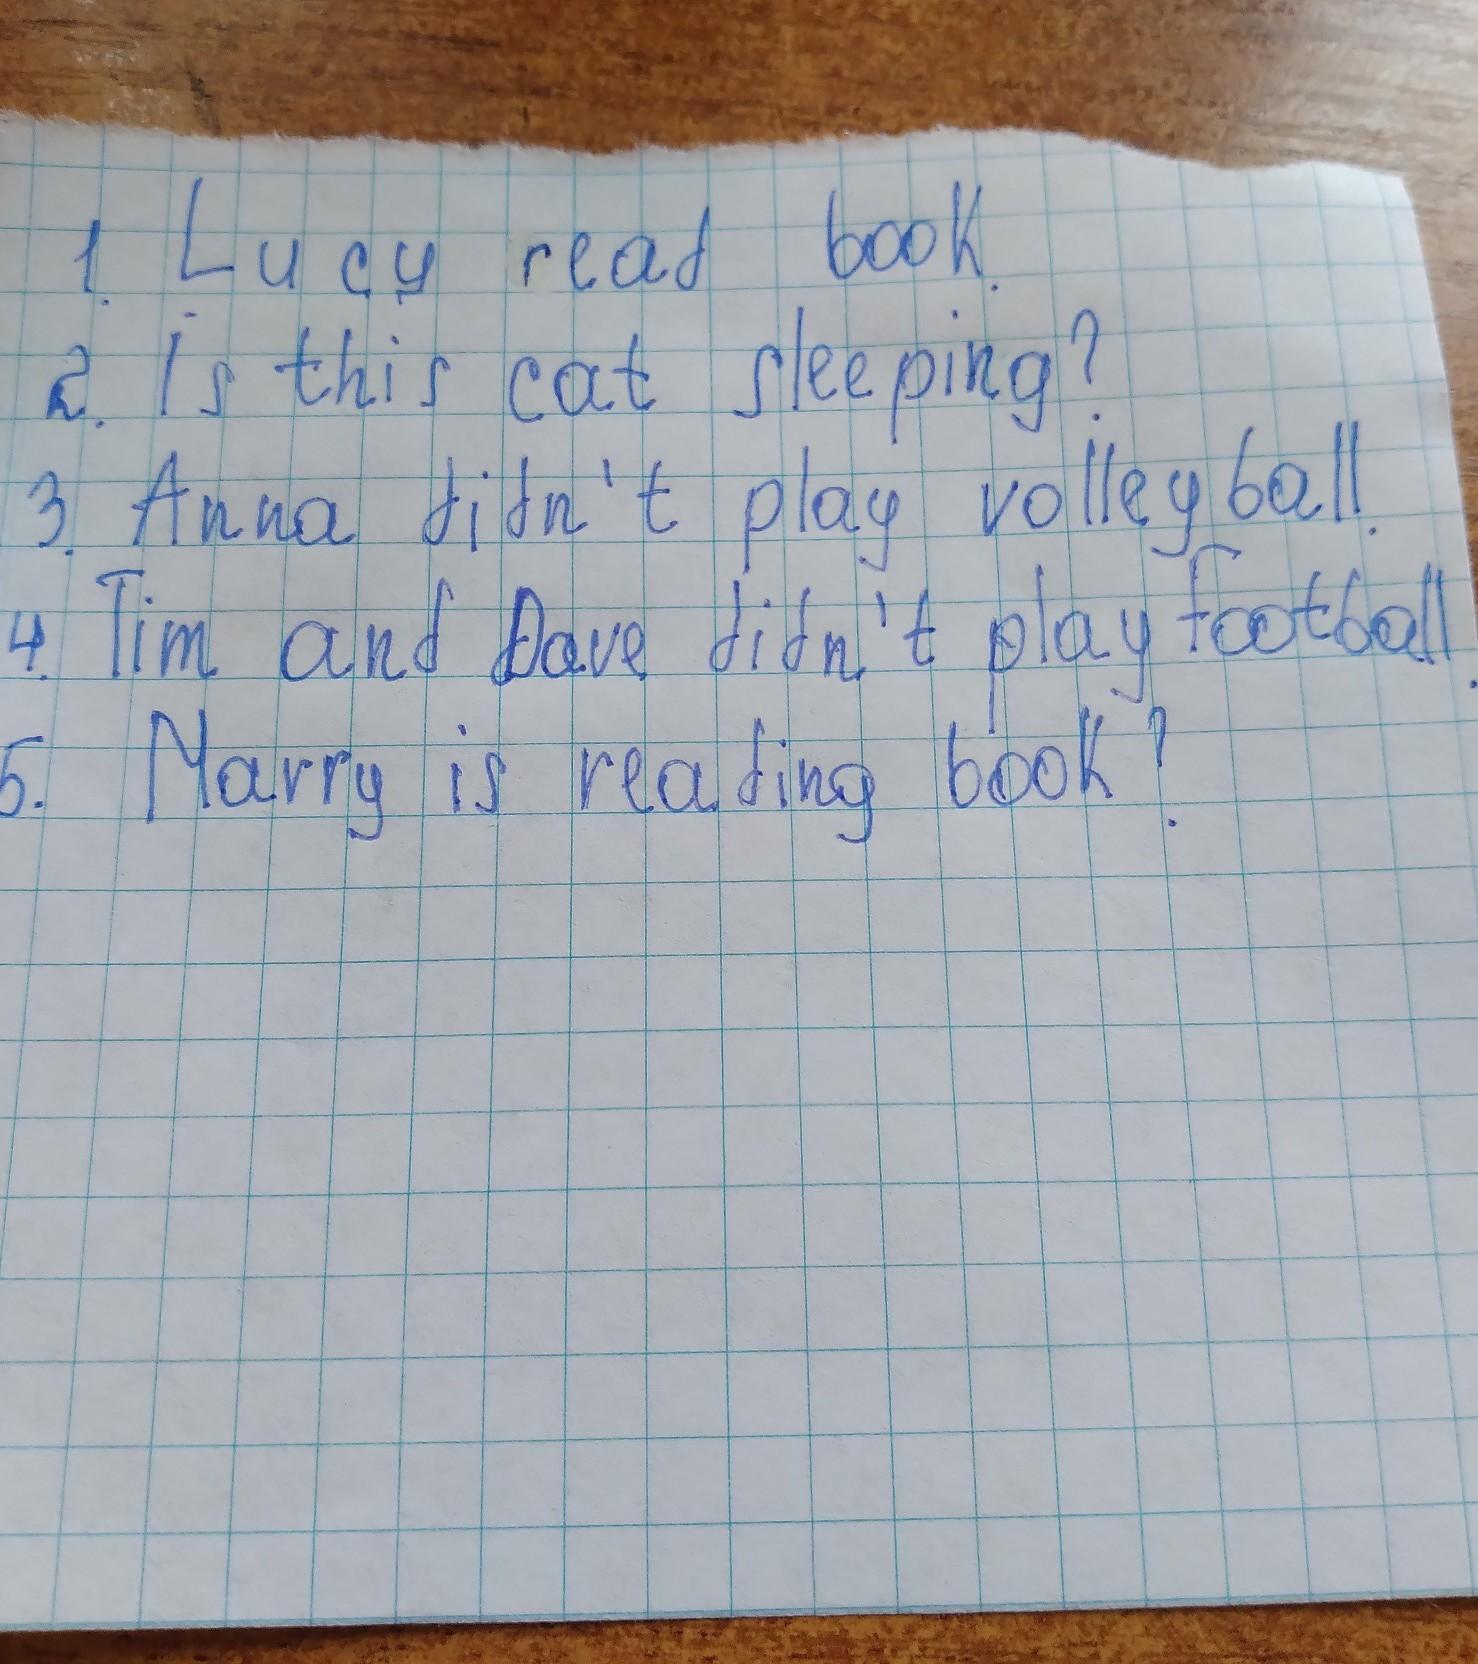 1. Lucy read book.
2. Is this cat sleeping?
3. Anna didn't play volleyball.
4. Tim and Dave didn't play football.
5. Marry is reading book?